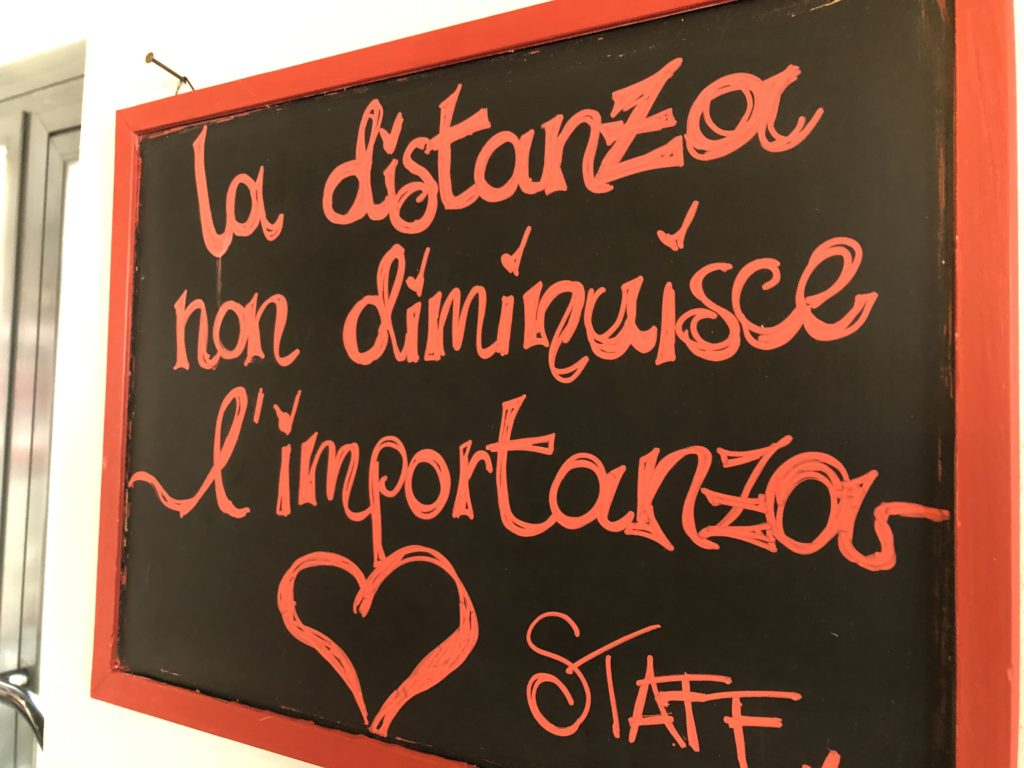 la distanza
non diminuisce
l'importanza
STAFF